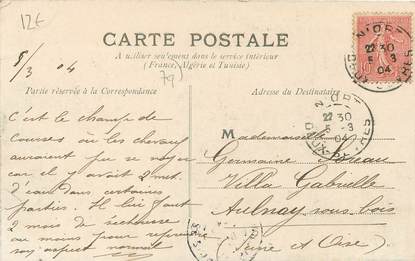 12€
5/3 04
CARTE POSTALE
A utiliser seulement dans le service intérieur
(France, Algérie et Tunisie)
Partie réservée à la Correspondance
Adresse du Destinataire
NIORT
22 30
5 -3
04
DEUX-SÈVRES
NIORT
22 30
5 -3
04
DEUX-SÈVRES
C'est le champ de
Courses où les chevaux
auraient pu se noyer
car il y avait 2 met.
d'eau dans certaines
parties. Il lui faut
2 mois de sécheresse
au moins pour reprendre
son aspect normal
Mademoiselle
Germaine
Villa Gabrielle
Aulnay sous bois
Seine et Oise